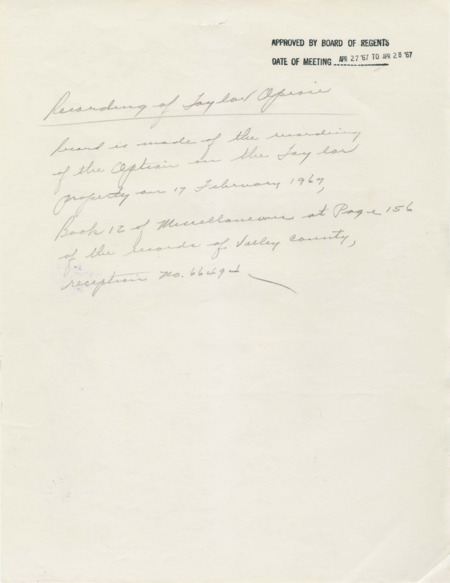 APPROVED BY BOARD OF REGENTS
DATE OF MEETING APR 27 '67 TO APR 28 '67
Recording of Taylor Option
Record is made of the recording
of the Option on the Taylor
property on 17 February 1967,
Book 12 of Miscellaneous at Page 156
of the records of Valley County,
reception no. 66494